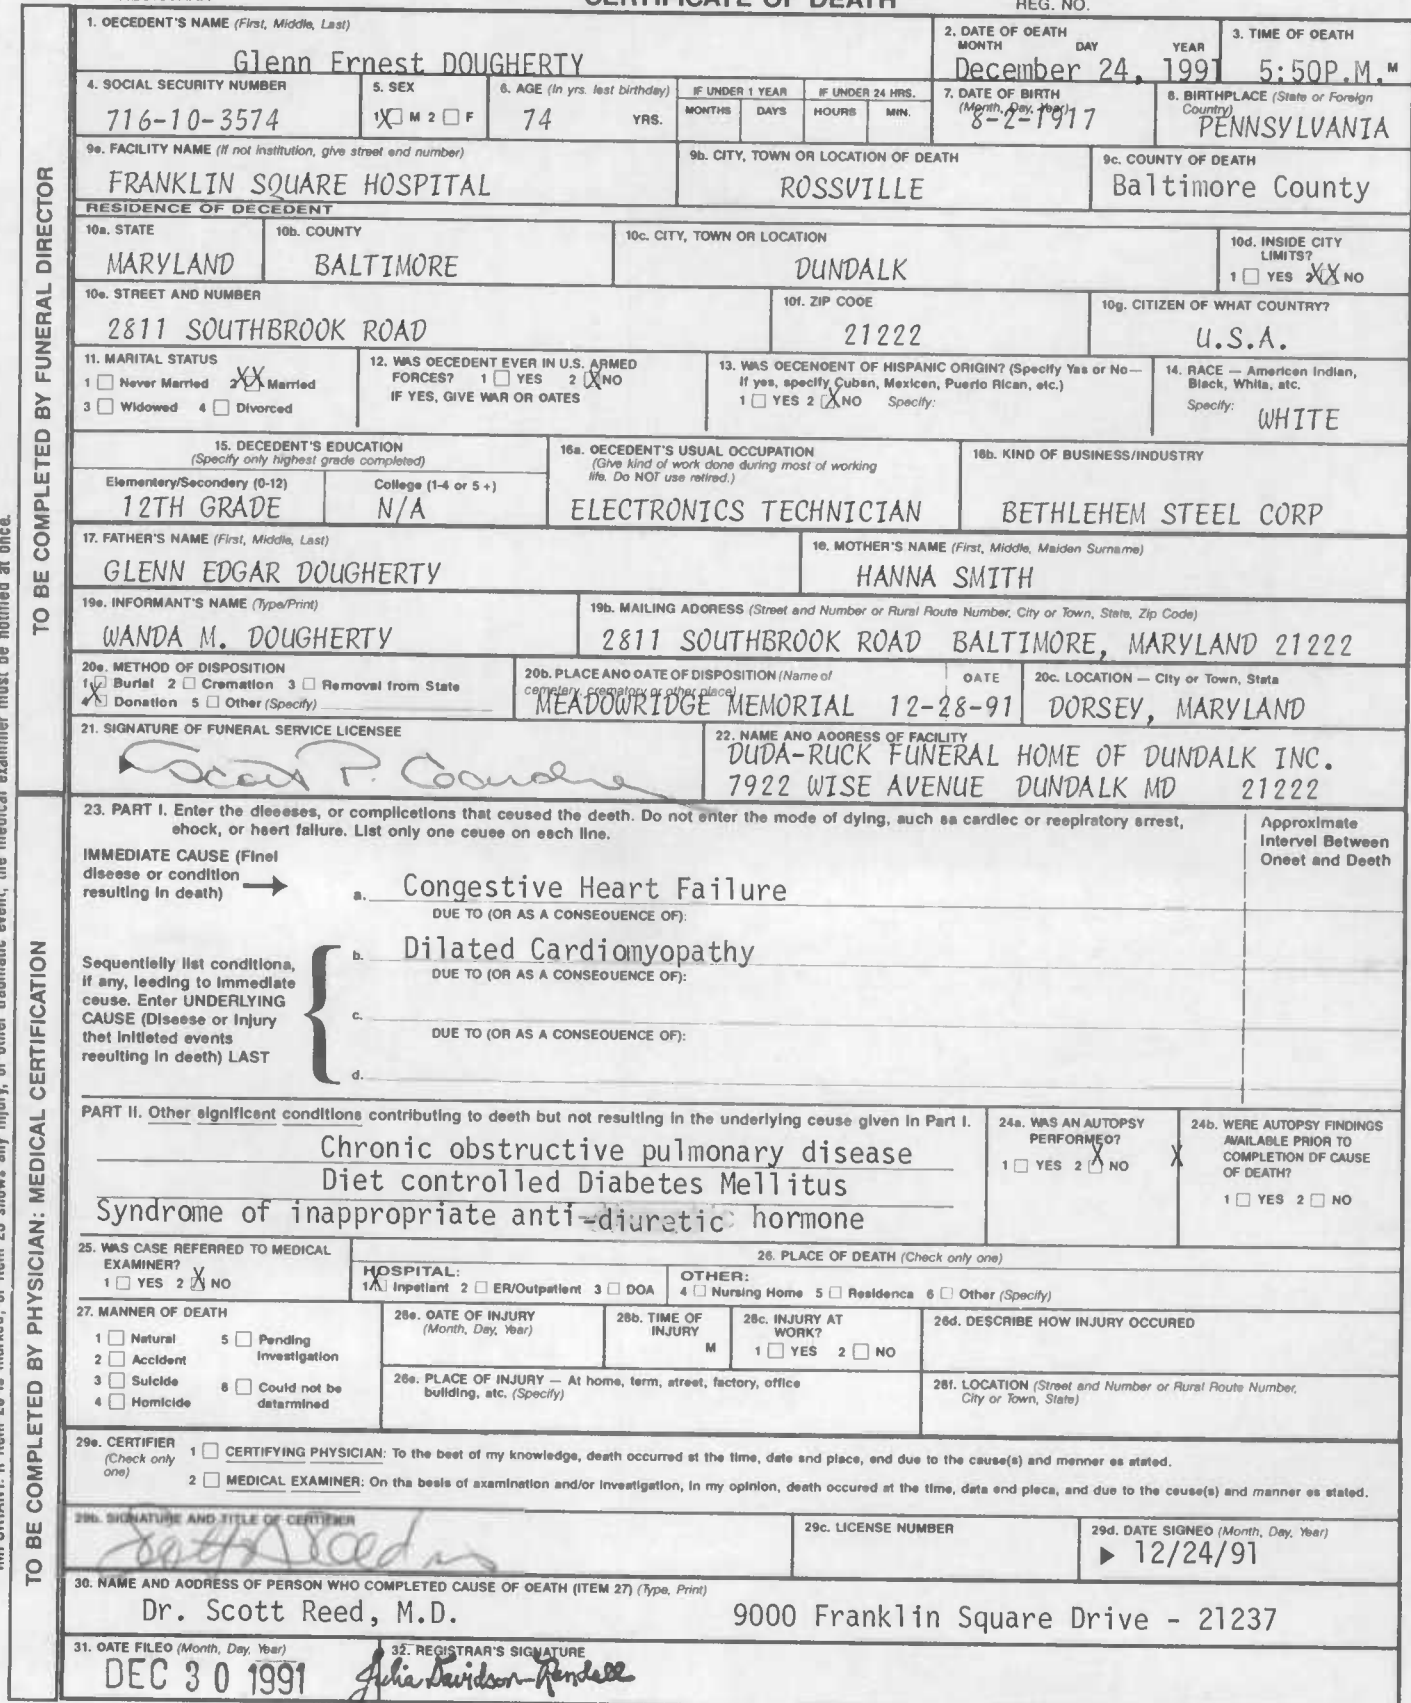 CERTIFICATE OF DEATH
REG. NO.
1. DECEDENT'S NAME (First, Middle, Last)
Glenn Ernest DOUGHERTY
2. DATE OF DEATH
MONTH DAY YEAR
December 24, 1991
3. TIME OF DEATH
5:50P.M. M
4. SOCIAL SECURITY NUMBER
716-10-3574
5. SEX
1 X M 2 F
6. AGE (In yrs. last birthday)
74 YRS.
IF UNDER 1 YEAR
MONTHS DAYS
IF UNDER 24 HRS.
HOURS MIN.
7. DATE OF BIRTH
(Month, Day, Year)
8-2-1917
8. BIRTHPLACE (State or Foreign
Country)
PENNSYLVANIA
9a. FACILITY NAME (If not institution, give street and number)
FRANKLIN SQUARE HOSPITAL
9b. CITY, TOWN OR LOCATION OF DEATH
ROSSVILLE
9c. COUNTY OF DEATH
Baltimore County
RESIDENCE OF DECEDENT
10a. STATE
MARYLAND
10b. COUNTY
BALTIMORE
10c. CITY, TOWN OR LOCATION
DUNDALK
10d. INSIDE CITY
LIMITS?
1 YES 2 XX NO
10e. STREET AND NUMBER
2811 SOUTHBROOK ROAD
10f. ZIP CODE
21222
10g. CITIZEN OF WHAT COUNTRY?
U.S.A.
11. MARITAL STATUS
1 Never Married 2 XX Married
3 Widowed 4 Divorced
12. WAS DECEDENT EVER IN U.S. ARMED
FORCES? 1 YES 2 X NO
IF YES, GIVE WAR OR DATES
13. WAS DECENDENT OF HISPANIC ORIGIN? (Specify Yes or No—
If yes, specify Cuban, Mexican, Puerto Rican, etc.)
1 YES 2 X NO Specify:
14. RACE — American Indian,
Black, White, etc.
Specify: WHITE
15. DECEDENT'S EDUCATION
(Specify only highest grade completed)
Elementary/Secondary (0-12)
12TH GRADE
College (1-4 or 5+)
N/A
16a. DECEDENT'S USUAL OCCUPATION
(Give kind of work done during most of working
life. Do NOT use retired.)
ELECTRONICS TECHNICIAN
16b. KIND OF BUSINESS/INDUSTRY
BETHLEHEM STEEL CORP
17. FATHER'S NAME (First, Middle, Last)
GLENN EDGAR DOUGHERTY
18. MOTHER'S NAME (First, Middle, Maiden Surname)
HANNA SMITH
19a. INFORMANT'S NAME (Type/Print)
WANDA M. DOUGHERTY
19b. MAILING ADDRESS (Street and Number or Rural Route Number, City or Town, State, Zip Code)
2811 SOUTHBROOK ROAD BALTIMORE, MARYLAND 21222
20a. METHOD OF DISPOSITION
1 Burial 2 Cremation 3 Removal from State
4 X Donation 5 Other (Specify)
20b. PLACE AND DATE OF DISPOSITION (Name of
cemetery, crematory or other place)
DATE
MEADOWRIDGE MEMORIAL 12-28-91
20c. LOCATION — City or Town, State
DORSEY, MARYLAND
21. SIGNATURE OF FUNERAL SERVICE LICENSEE
Scott P.
22. NAME AND ADDRESS OF FACILITY
DUDA-RUCK FUNERAL HOME OF DUNDALK INC.
7922 WISE AVENUE DUNDALK MD 21222
TO BE COMPLETED BY FUNERAL DIRECTOR
23. PART I. Enter the diseases, or complications that caused the death. Do not enter the mode of dying, such as cardiac or respiratory arrest,
shock, or heart failure. List only one cause on each line.
Approximate
Interval Between
Onset and Death
IMMEDIATE CAUSE (Final
disease or condition
resulting in death)
a. Congestive Heart Failure
DUE TO (OR AS A CONSEQUENCE OF):
b. Dilated Cardiomyopathy
DUE TO (OR AS A CONSEQUENCE OF):
Sequentially list conditions,
if any, leading to immediate
cause. Enter UNDERLYING
CAUSE (Disease or injury
that initiated events
resulting in death) LAST
c.
DUE TO (OR AS A CONSEQUENCE OF):
d.
PART II. Other significant conditions contributing to death but not resulting in the underlying cause given in Part I.
Chronic obstructive pulmonary disease
Diet controlled Diabetes Mellitus
Syndrome of inappropriate anti-diuretic hormone
24a. WAS AN AUTOPSY
PERFORMED?
1 YES 2 X NO
X
24b. WERE AUTOPSY FINDINGS
AVAILABLE PRIOR TO
COMPLETION OF CAUSE
OF DEATH?
1 YES 2 NO
25. WAS CASE REFERRED TO MEDICAL
EXAMINER?
1 YES 2 X NO
26. PLACE OF DEATH (Check only one)
HOSPITAL:
1 X Inpatient 2 ER/Outpatient 3 DOA
OTHER:
4 Nursing Home 5 Residence 6 Other (Specify)
27. MANNER OF DEATH
1 Natural 5 Pending
2 Accident Investigation
3 Suicide 6 Could not be
4 Homicide determined
28a. DATE OF INJURY
(Month, Day, Year)
28b. TIME OF
INJURY
M
28c. INJURY AT
WORK?
1 YES 2 NO
28d. DESCRIBE HOW INJURY OCCURED
28e. PLACE OF INJURY — At home, term, street, factory, office
building, etc. (Specify)
28f. LOCATION (Street and Number or Rural Route Number,
City or Town, State)
29a. CERTIFIER
(Check only
one)
1 CERTIFYING PHYSICIAN: To the best of my knowledge, death occurred at the time, date and place, and due to the cause(s) and manner as stated.
2 MEDICAL EXAMINER: On the basis of examination and/or investigation, in my opinion, death occured at the time, data and place, and due to the cause(s) and manner as stated.
29b. SIGNATURE AND TITLE OF CERTIFIER
29c. LICENSE NUMBER
29d. DATE SIGNED (Month, Day, Year)
12/24/91
30. NAME AND ADDRESS OF PERSON WHO COMPLETED CAUSE OF DEATH (ITEM 27) (Type, Print)
Dr. Scott Reed, M.D. 9000 Franklin Square Drive - 21237
31. DATE FILED (Month, Day, Year)
DEC 30 1991
32. REGISTRAR'S SIGNATURE
Julia Davidson-Randall
TO BE COMPLETED BY PHYSICIAN: MEDICAL CERTIFICATION